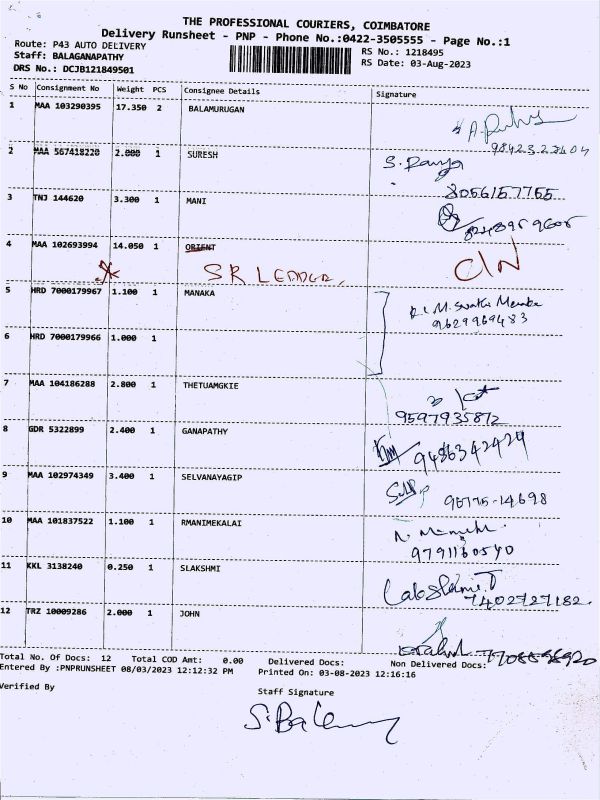 THE PROFESSIONAL COURIERS, COIMBATORE
Delivery Runsheet - PNP - Phone No.:0422-3505555 - Page No.:1
Route: P43 AUTO DELIVERY RS No.: 1218495
Staff: BALAGANAPATHY RS Date: 03-Aug-2023
DRS No.: DCJB121849501
S No Consignment No Weight PCS Consignee Details Signature
1 MAA 103290395 17.350 2 BALAMURUGAN
2 MAA 567418220 2.000 1 SURESH S. Ramya
8056157755
3 TNJ 144620 3.300 1 MANI
4 MAA 102693994 14.050 1 ORIENT
SR LEADER, C/N
5 HRD 7000179967 1.100 1 MANAKA
9629969483
6 HRD 7000179966 1.000 1
7 MAA 104186288 2.800 1 THETUAMGKIE
9597935872
8 GDR 5322899 2.400 1 GANAPATHY
9486342424
9 MAA 102974349 3.400 1 SELVANAYAGIP
95775-14698
10 MAA 101837522 1.100 1 RMANIMEKALAI
9791160540
11 KKL 3138240 0.250 1 SLAKSHMI
Lakshmi.T
7402727182.
12 TRZ 10009286 2.000 1 JOHN
7708598920
Total No. Of Docs: 12 Total COD Amt: 0.00 Delivered Docs: Non Delivered Docs:
Entered By :PNPRUNSHEET 08/03/2023 12:12:32 PM Printed On: 03-08-2023 12:16:16
Verified By Staff Signature